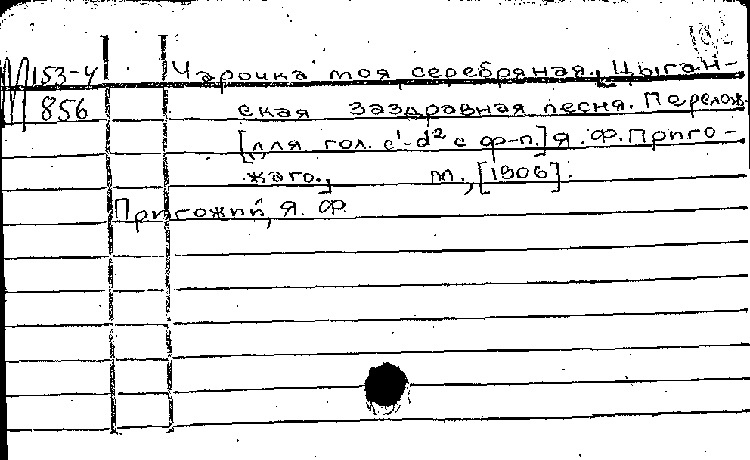 М153-4 Чарочка моя серебряная. Цыган-
856 ская заздравная песня. Перелож.
[для гол. c¹-d² с ф-п.] Я. Ф. Приго-
жаго. М., [1906].
Пригожий, Я. Ф.